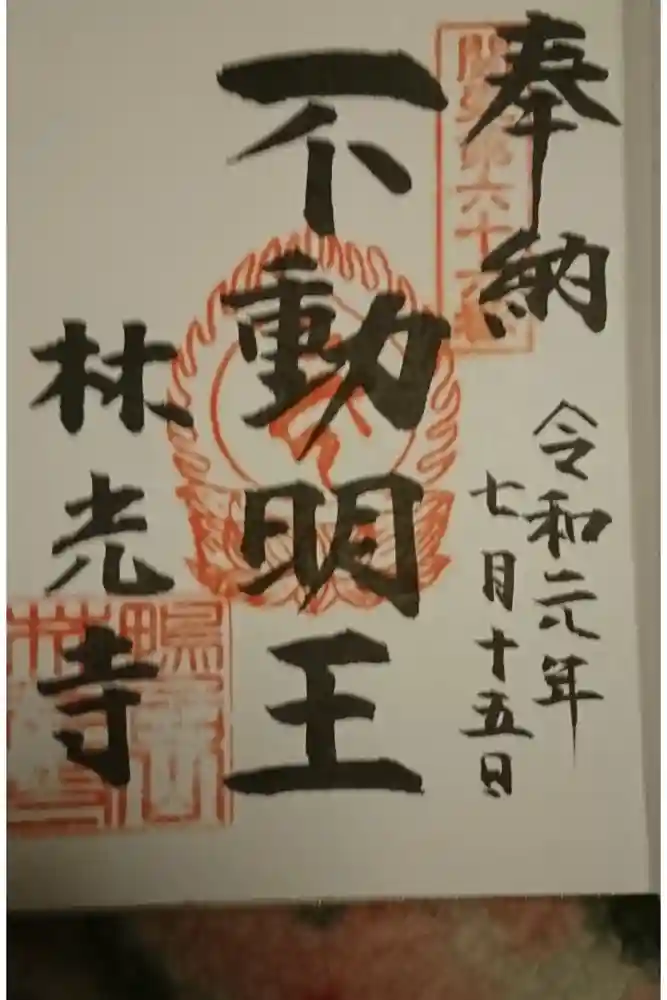 奉納
第六十
令和元年
七月十五日
不動明王
林光寺